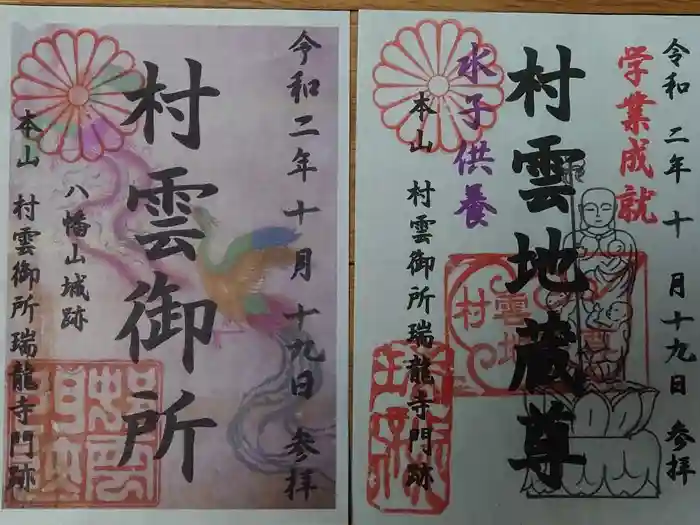 令和二年十月十九日 参拝
村雲御所
八幡山城跡
本山 村雲御所瑞龍寺門跡
学業成就
令和二年十月十九日 参拝
村雲地蔵尊
水子供養
本山 村雲御所瑞龍寺門跡